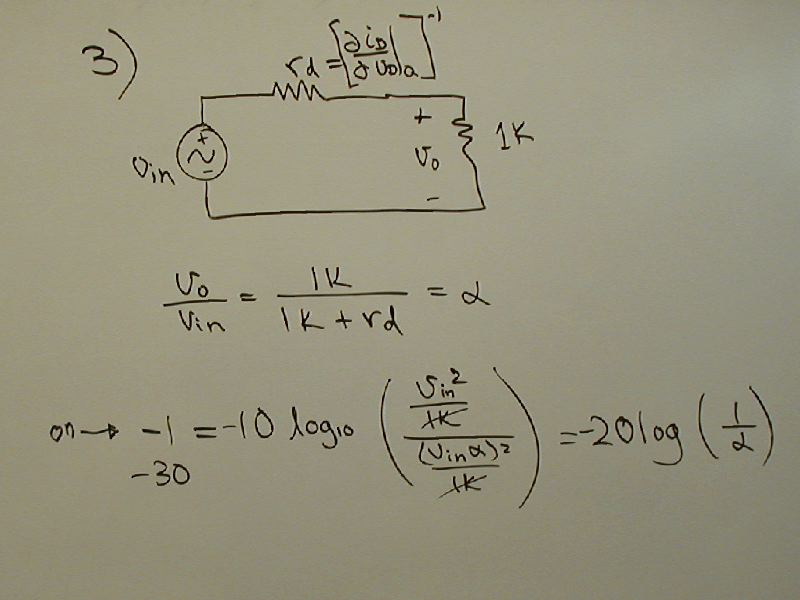 3)
rd = [∂iD/∂vD|Q]⁻¹
+
vin
-
+
vo
-
1K
vo/vin = 1K/(1K + rd) = α
on → -1 = -10 log₁₀ ((vin²/1K)/((vin α)²/1K)) = -20 log (1/α)
-30